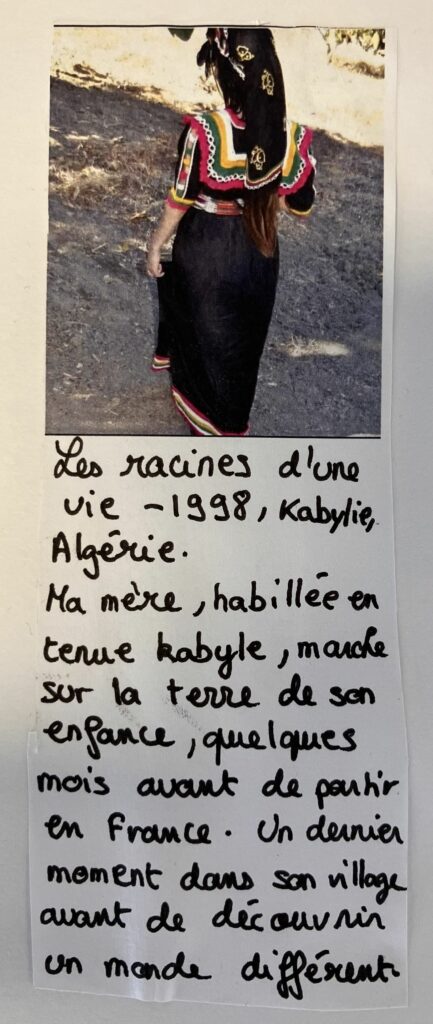 Les racines d'une
vie - 1998, Kabylie,
Algérie.
Ma mère, habillée en
tenue kabyle, marche
sur la terre de son
enfance, quelques
mois avant de partir
en France. Un dernier
moment dans son village
avant de découvrir
un monde différent.